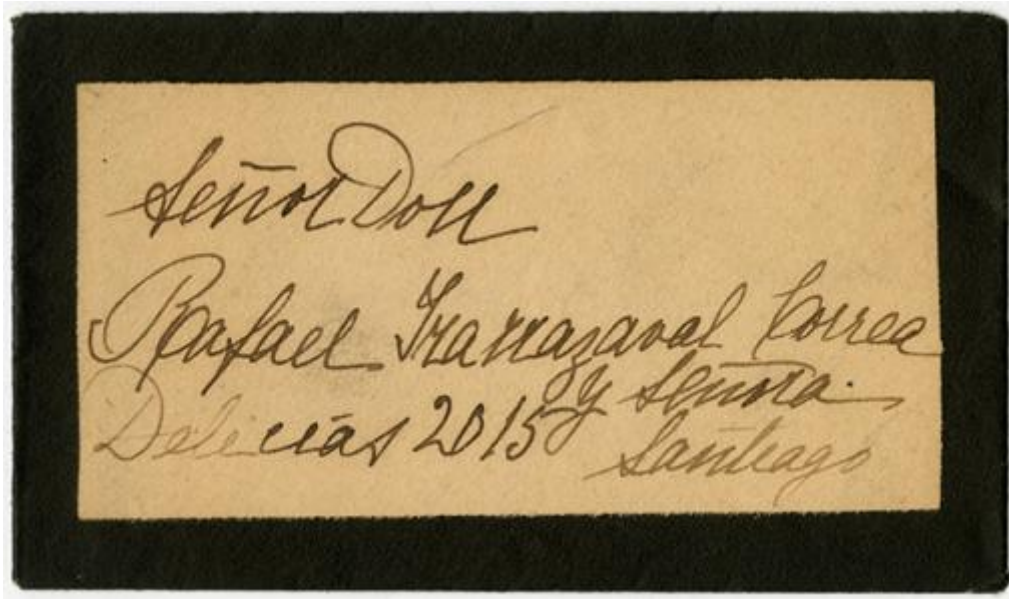 Señor Don
Rafael Irarrazaval Correa
y Señora
Delicias 2015
Santiago